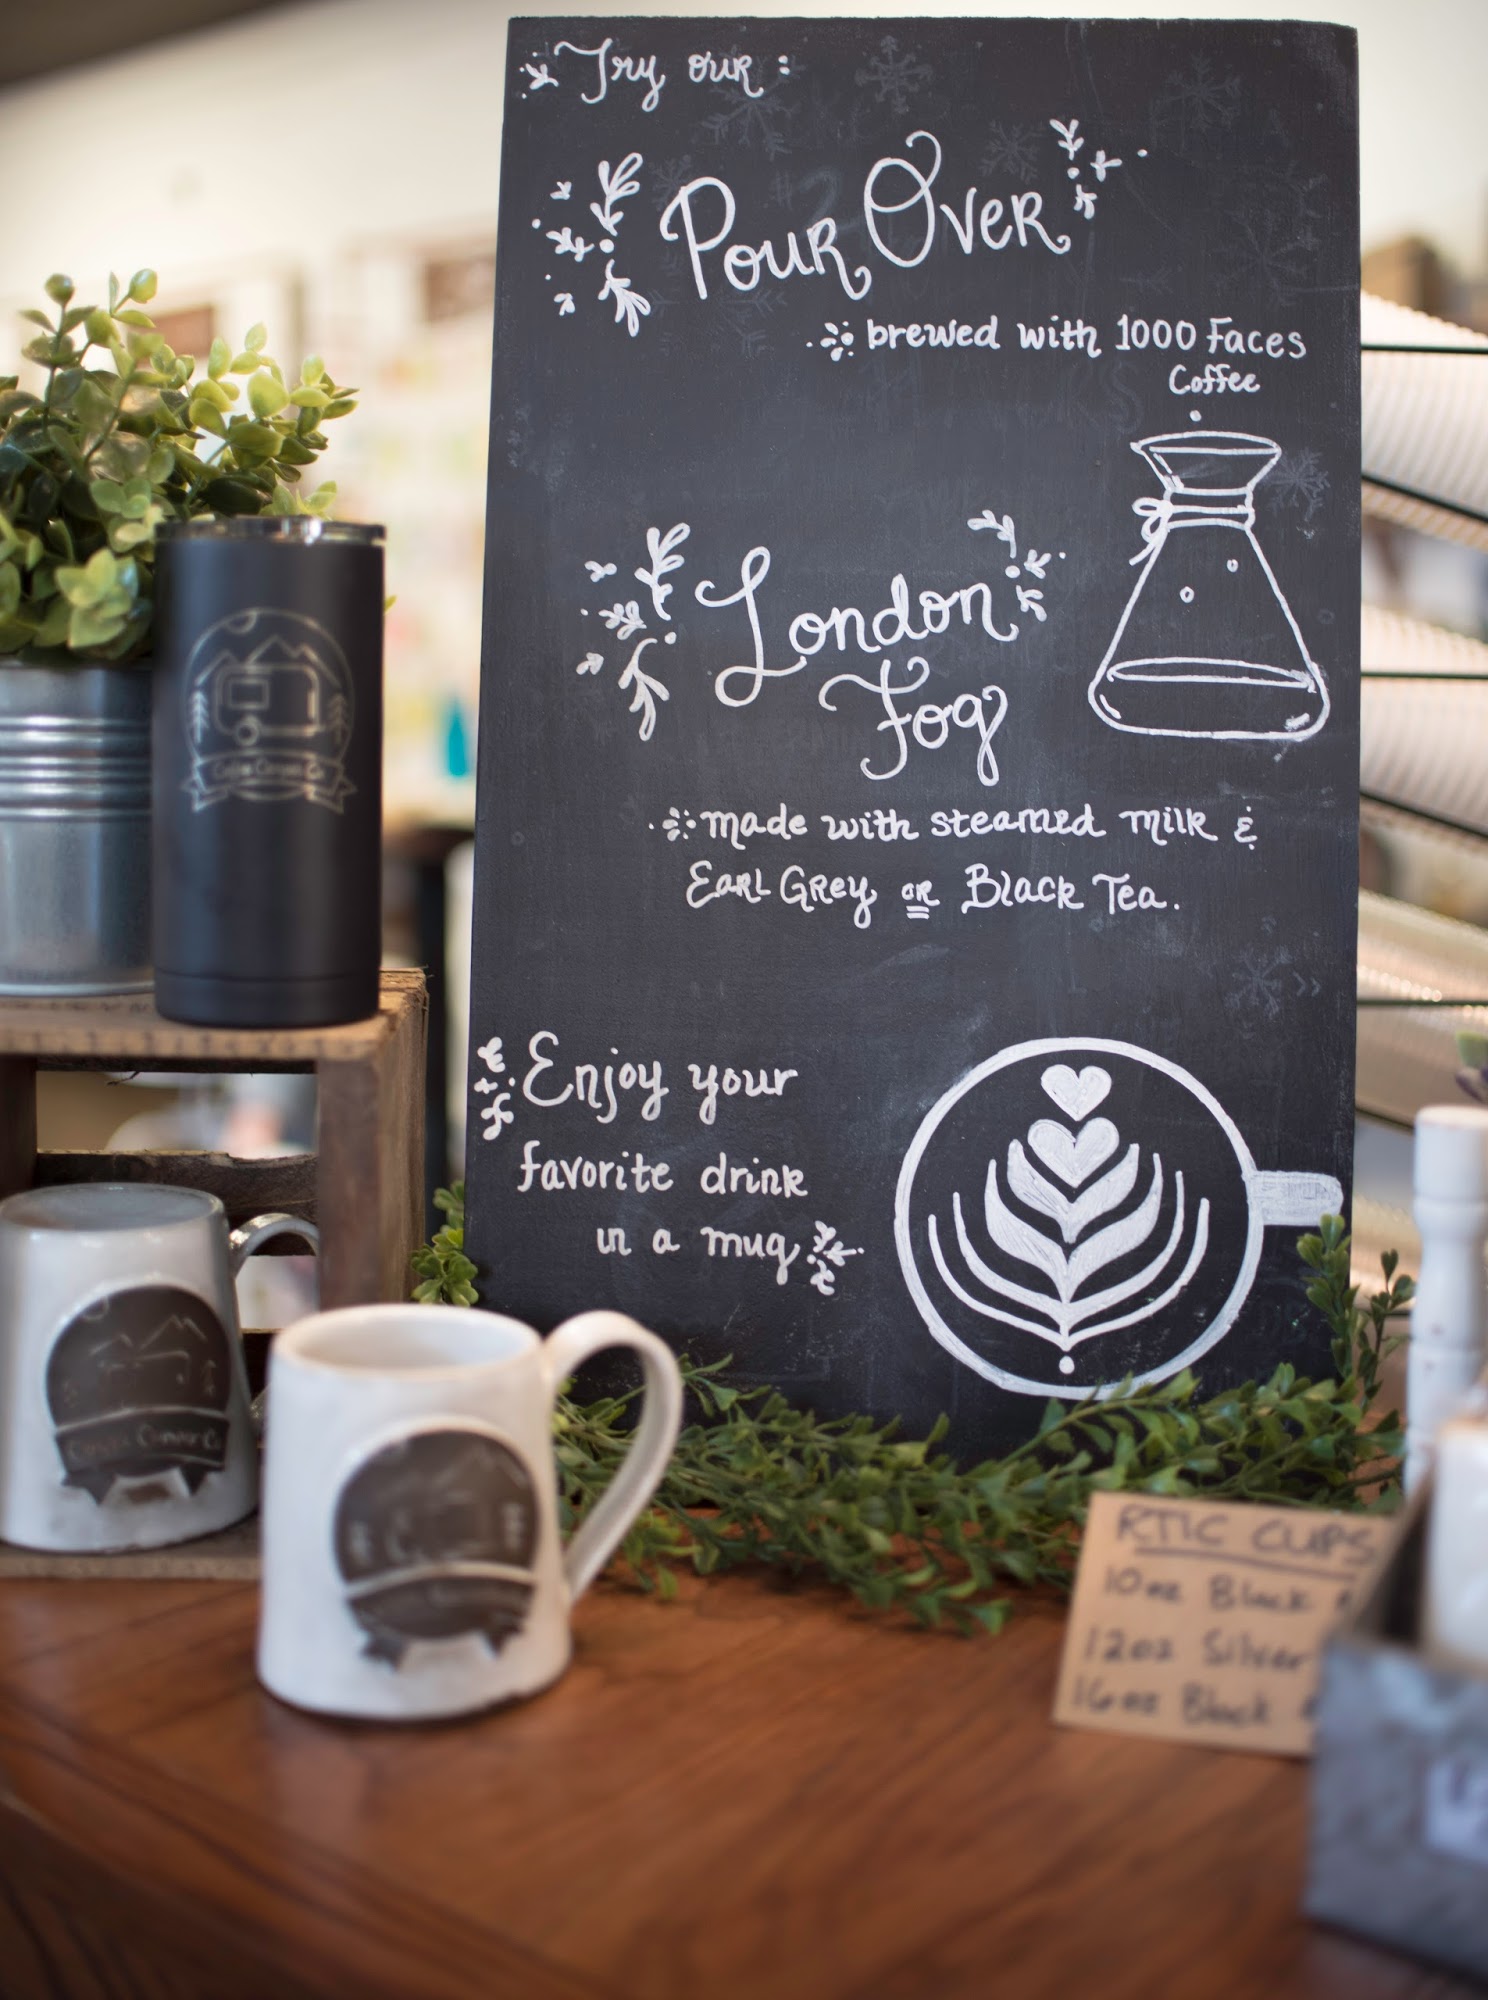 Try our :
Pour Over
brewed with 1000 Faces
Coffee
London
Fog
made with steamed milk &
Earl Grey or Black Tea.
Enjoy your
favorite drink
in a mug
RTIC CUPS
10oz Black
12oz Silver
16oz Black